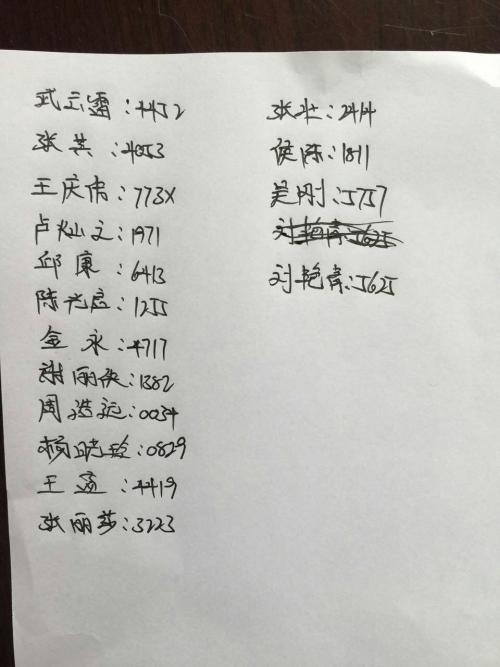 式云霄:4452
张英:4053
王庆伟:773X
卢灿文:1971
邱康:6413
陈光启:1255
金永:4717
谢丽侠:1382
周浩远:0034
杨晓玲:0829
王蕊:4419
张丽莎:3223
张壮:2414
侯陈:1811
吴刚:5757
刘艳青:5625
刘艳青:5625